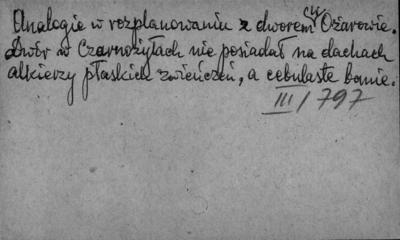 Analogie w rozplanowaniu z dworem w Ożarowie.
Dwór w Czarnożyłach nie posiadał na dachach
alkierzy płaskich zwieńczeń, a cebulaste banie.
III/797